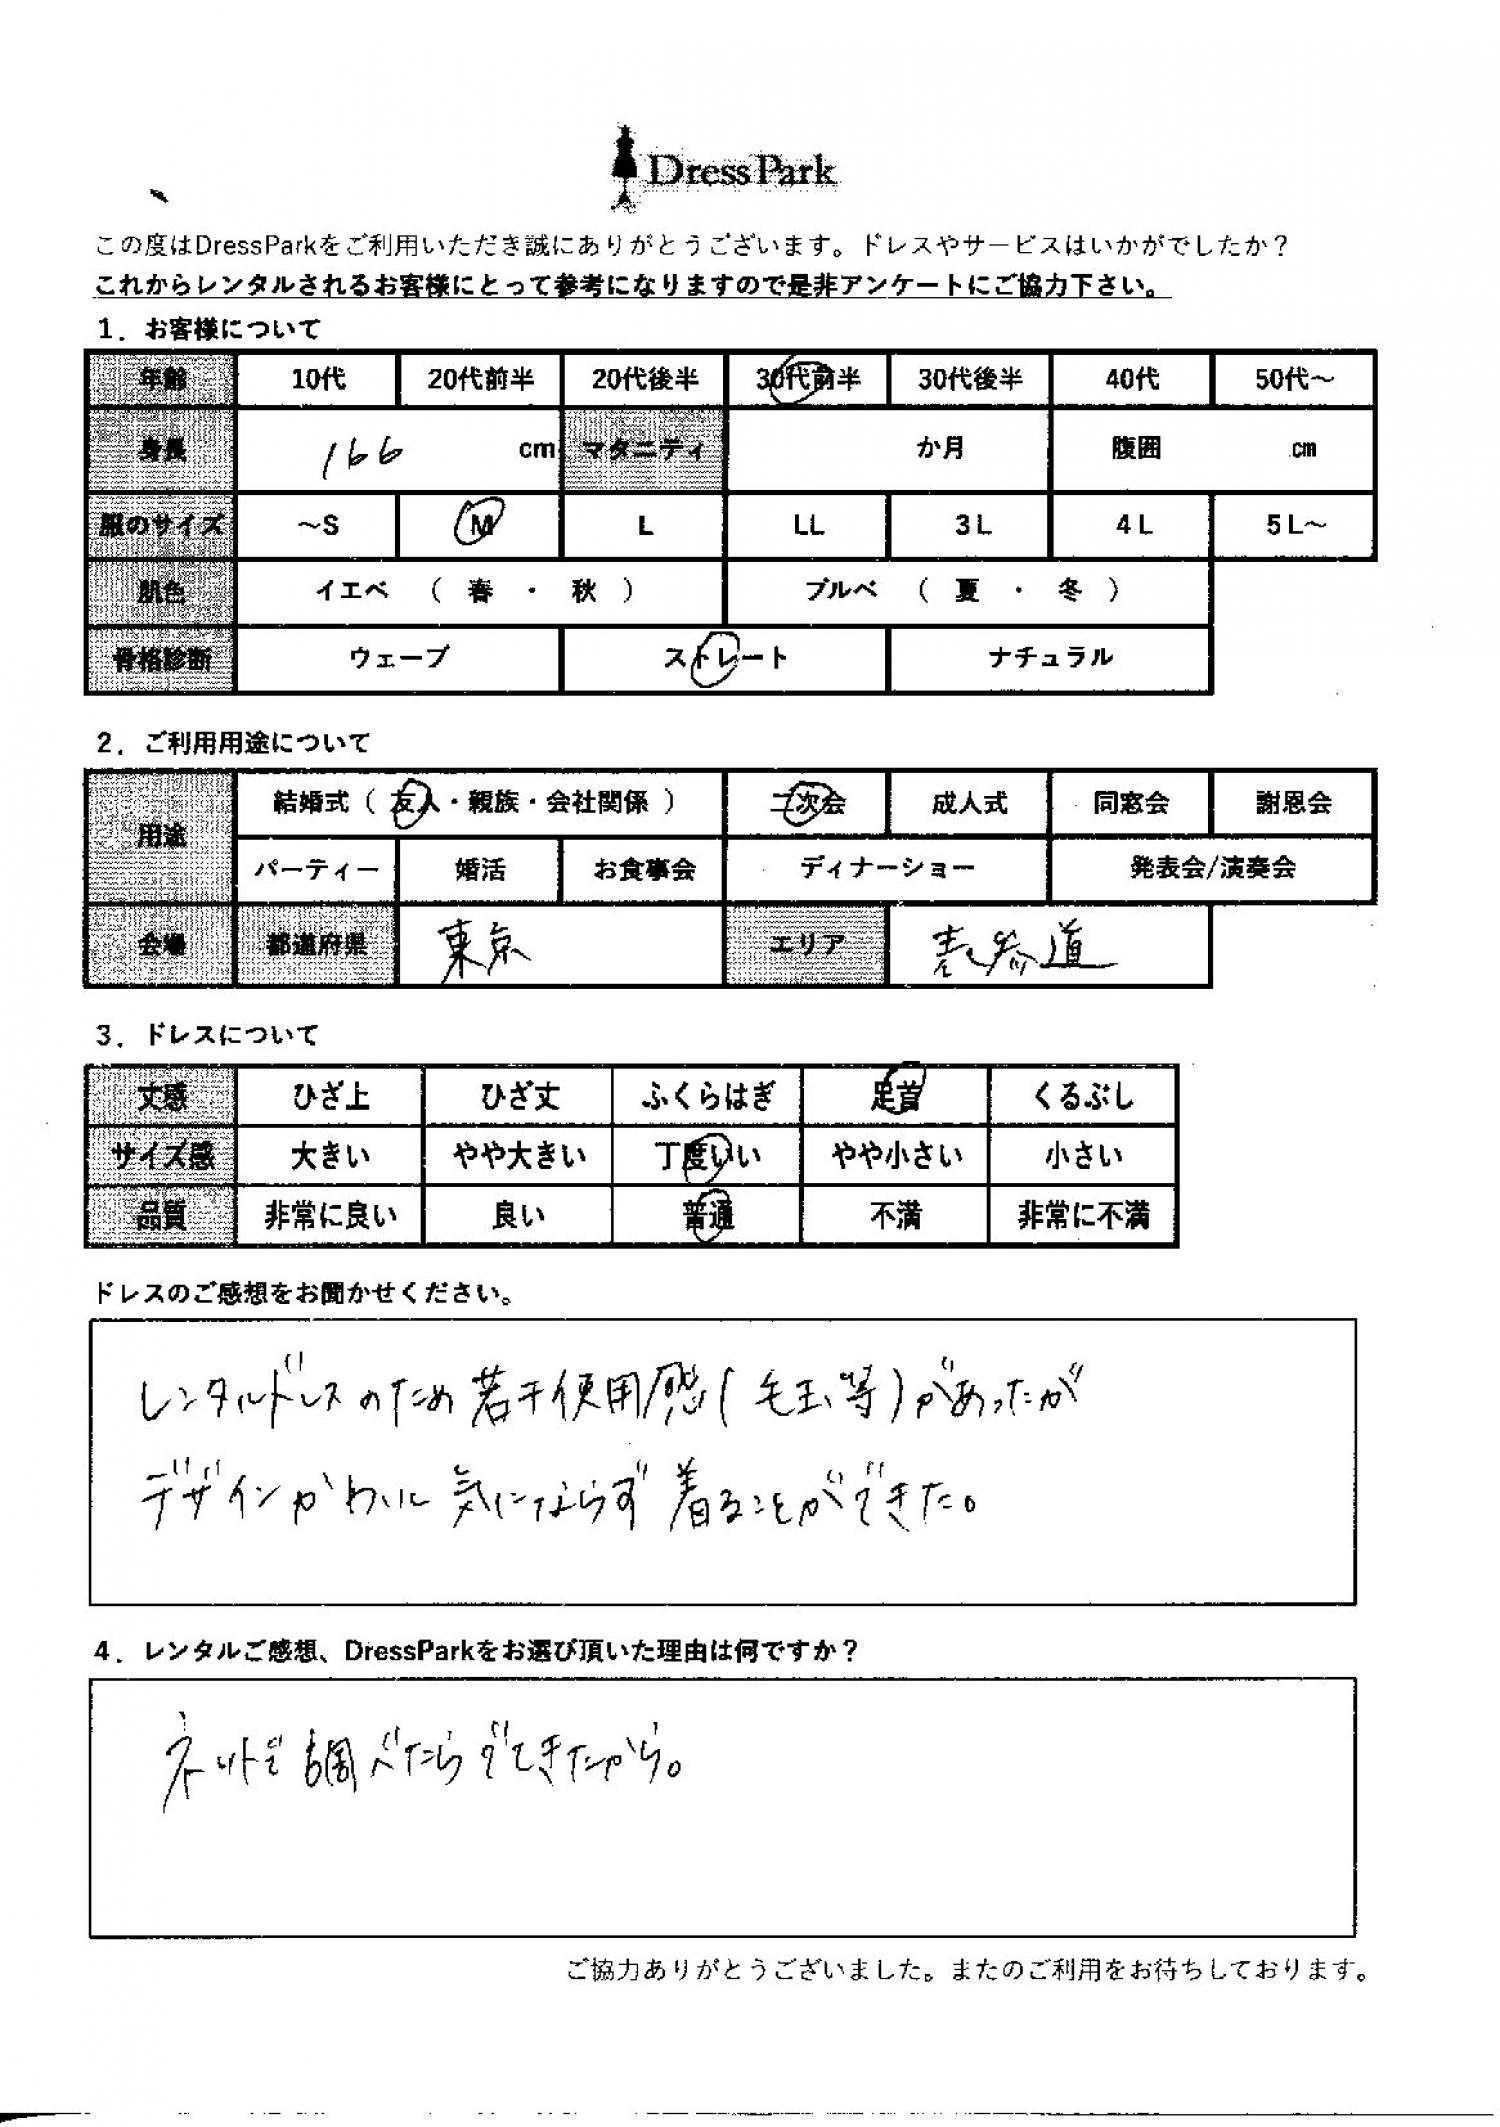 DressPark
この度はDressParkをご利用いただき誠にありがとうございます。ドレスやサービスはいかがでしたか？
これからレンタルされるお客様にとって参考になりますので是非アンケートにご協力下さい。
1．お客様について
年齢 10代 20代前半 20代後半 30代前半 30代後半 40代 50代～
身長 166 cm マタニティ か月 腹囲 cm
服のサイズ ～S M L LL 3L 4L 5L～
肌色 イエベ （ 春 ・ 秋 ） ブルベ （ 夏 ・ 冬 ）
骨格診断 ウェーブ ストレート ナチュラル
2．ご利用用途について
用途 結婚式（ 友人・親族・会社関係 ） 二次会 成人式 同窓会 謝恩会
パーティー 婚活 お食事会 ディナーショー 発表会/演奏会
会場 都道府県 東京 エリア 表参道
3．ドレスについて
丈感 ひざ上 ひざ丈 ふくらはぎ 足首 くるぶし
サイズ感 大きい やや大きい 丁度いい やや小さい 小さい
品質 非常に良い 良い 普通 不満 非常に不満
ドレスのご感想をお聞かせください。
レンタルドレスのため若干使用感(毛玉等)があったが
デザインかわいく気にならず着ることができた。
4．レンタルご感想、DressParkをお選び頂いた理由は何ですか？
ネットで調べたらでてきたから。
ご協力ありがとうございました。またのご利用をお待ちしております。